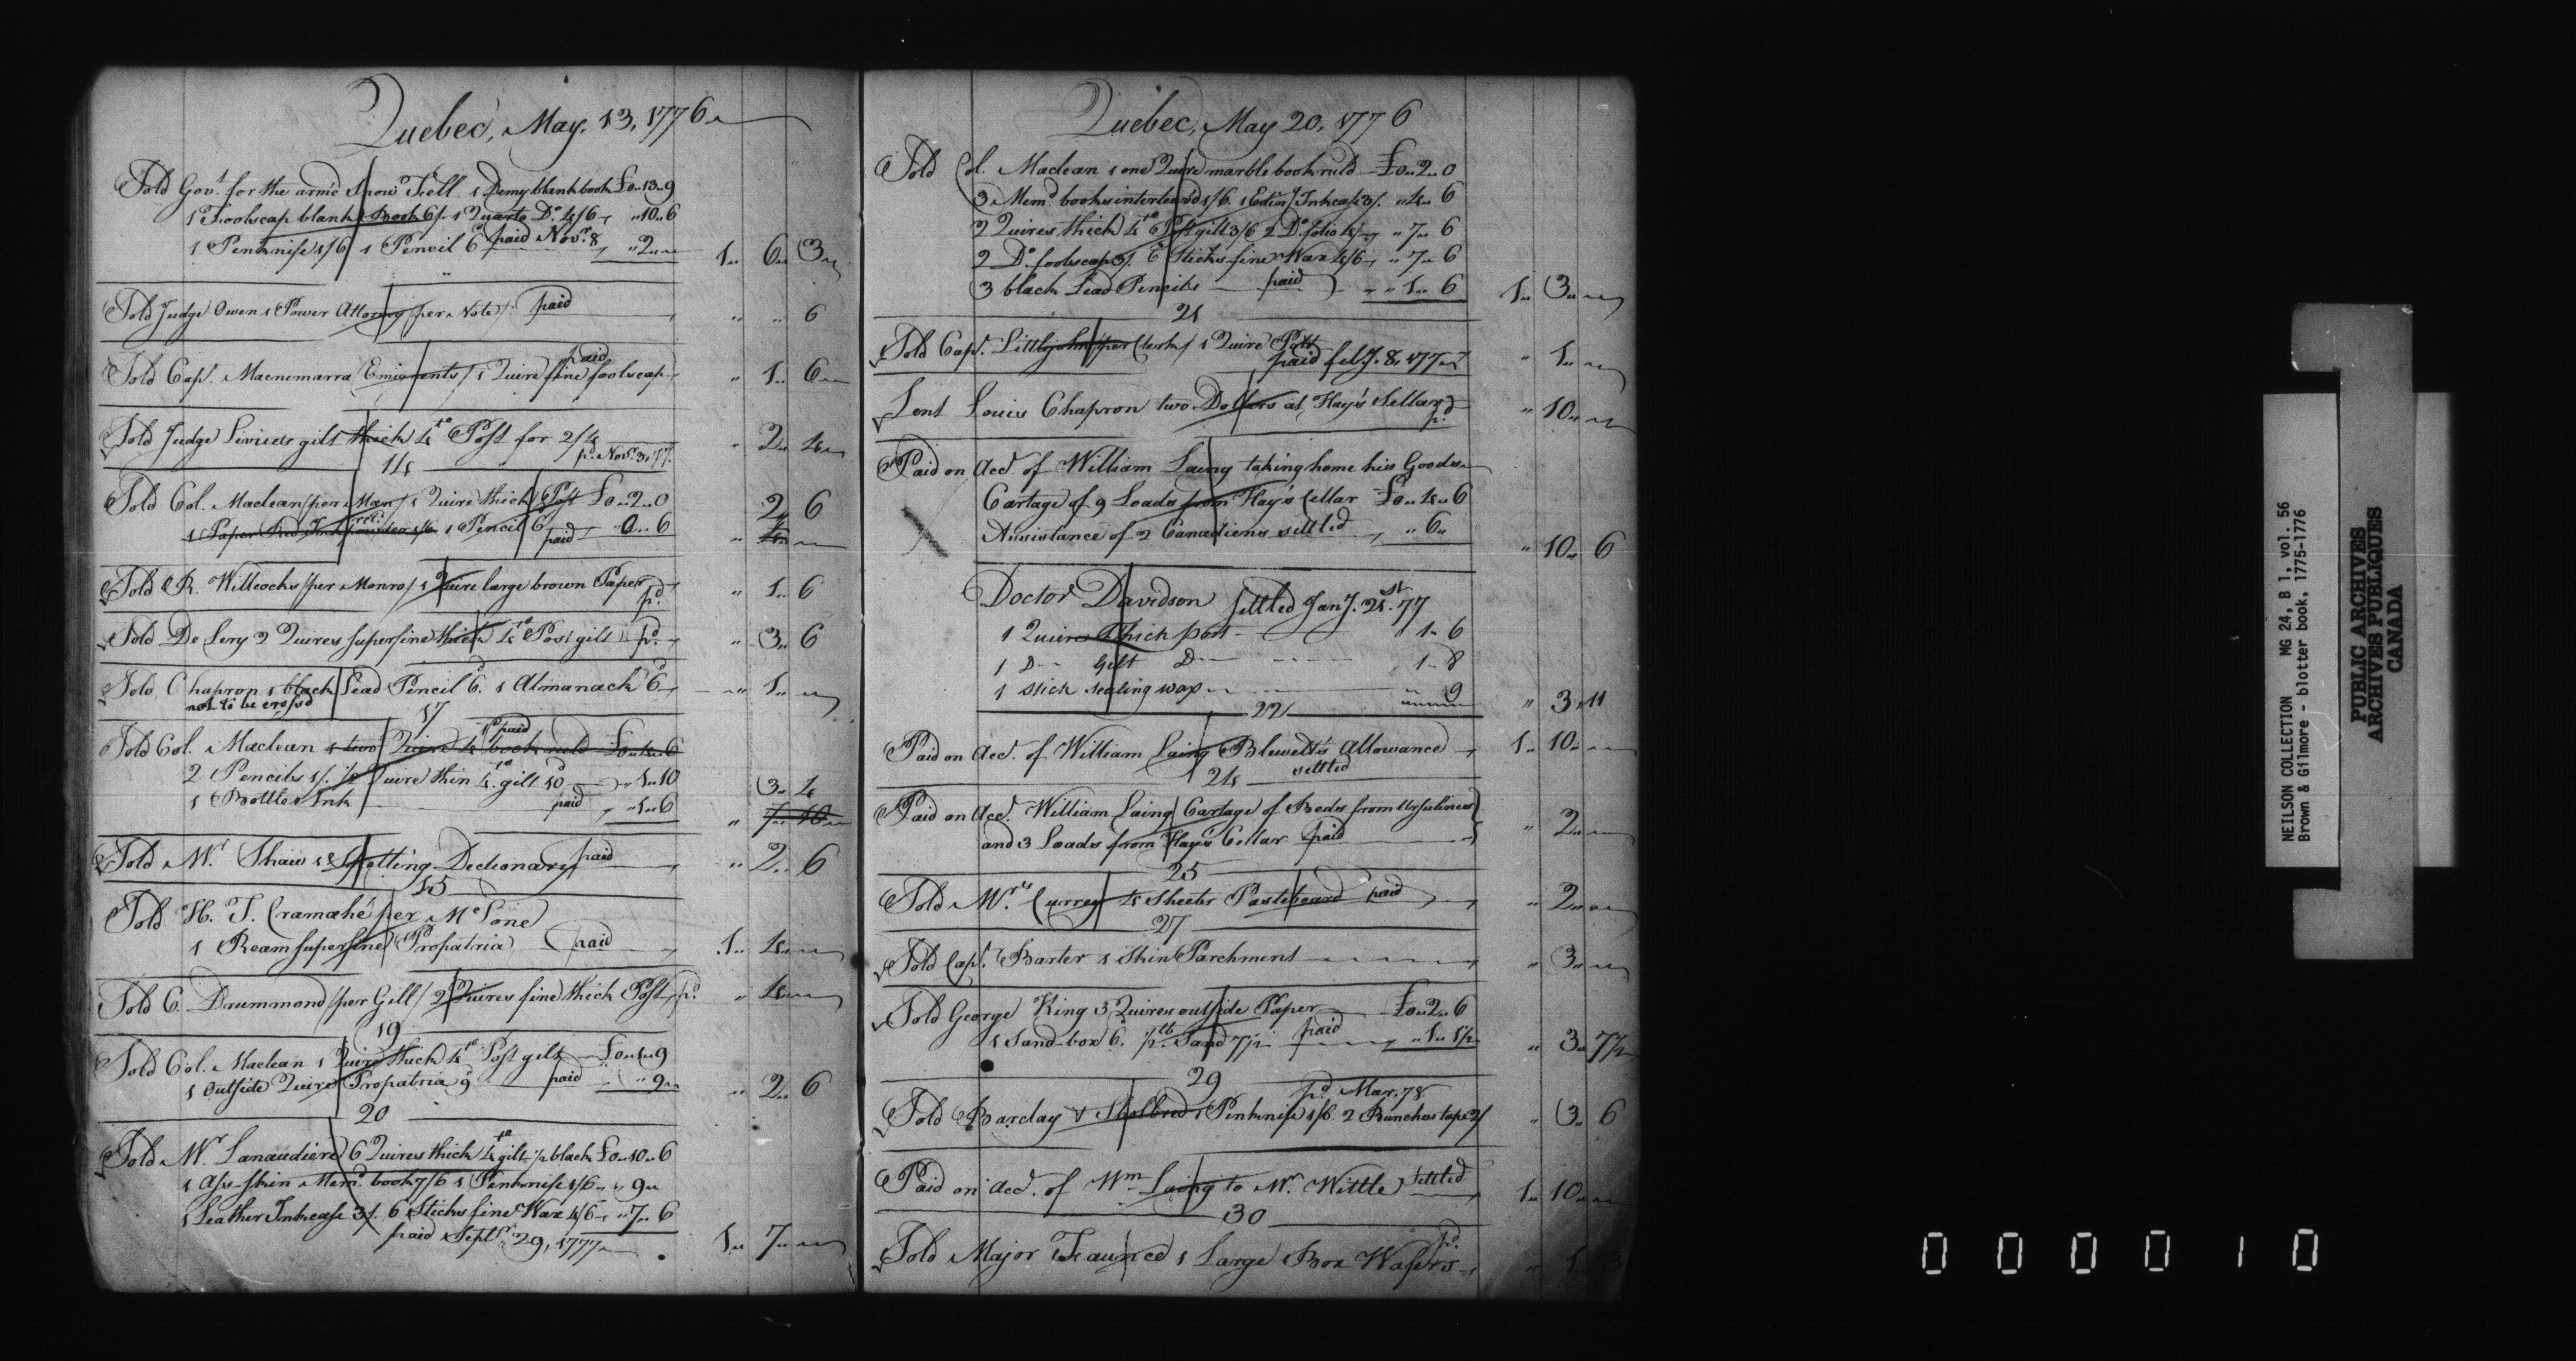 Quebec, May, 13, 1776
Sold Gov.t for the arm'd Snow Fell 1 Demy blank book £0..13..9
1 Foolscap blank Book 6/. 1 Quarto D.o 4/6 "10..6
1 Penknife 1/6 1 Pencil 6d paid Nov.r 8 "2.. 1.. 6.. 3
Sold Judge Owen 1 Power Attorney /per Note/ paid " " 6
paid
Sold Cap.t Macnomarra Emigrants / 1 Quire fine foolscap " 1.. 6
Sold Judge Livius gilt thick 4to Post for 2/4 " 2.. 4
p.d Nov.r 3, 77.
14
Sold Col. Maclean /per Man/ 1 Quire thick Post £0..2..0 2 6
1 Paper Red Ink powder 1/6 1 Pencil 6 paid 0..6 " 4
Sold R. Willcocks /per Monro/ 1 Quire large brown Paper p.d " 1.. 6
Sold De Lery 2 Quires superfine thick 4to Post gilt p.d " 3.. 6
Sold Chapron 1 black Lead Pencil 6d. 1 Almanack 6d " 1..
not to be cross'd
17
paid
Sold Col. Maclean 1 two Quire 4to book ruld £0..4..6
2 Pencils 1/. 1/2 Quire thin 4to gilt 10d "1..10 3.. 4
1 Bottle Ink paid "1..6 " 7.. 10
Sold M.r Shaw 1 Spelling Dectionary paid " 2.. 6
15
Sold H. T. Cramahé per McLone
1 Ream superfine Propatria paid 1.. 4..
Sold C. Drummond /per Gill/ 2 Quires fine thick Post p.d " 4..
19
Sold Col. Maclean 1 Quire thick 4to Post gilt £0..1..9
1 Outside Quire Propatria 9d paid "9.. " 2.. 6
20
Sold M.r Lanaudiere 6 Quires thick 4to gilt 1/2 black £0..10..6
1 Ass-skin Mem.d book 7/6 1 Penknife 1/6 " 9..
1 Leather Inkcase 3/. 6 Sticks fine Wax 4/6 "7..6
paid Sept.r 29, 1777 1.. 7..
Quebec, May 20, 1776
Sold Col. Maclean 1 one Quire marble book ruld £0..2..0
3 Mem.d books interleav'd 1/6. 1 Edin.y Inkcase 3/. "4..6
2 Quires thick 4to Post gilt 3/6 2 D.o folio 4/ "7..6
2 D.o foolscap 3/. 6 Sticks fine Wax 4/6 "7..6
3 black Lead Pencils paid "1..6 1.. 3..
21
Sold Cap.t Littlejohn /per Clerk/ 1 Quire Post " 1..
paid feb.y 8, 1777
Lent Louis Chapron two Dollars at Hay's Sellar p.d " 10..
Paid on Acc.t of William Laing taking home his Goods
Cartage of 9 Loads from Hay's Cellar £0..4..6
Assistance of 2 Canadiens settled "6.. " 10.. 6
Doctor Davidson settled Jan.y 21st 77
1 Quire thick post 1..6
1 D Gilt D 1..8
1 stick sealing wax " 9 " 3 " 11
22
Paid on Acc.t of William Laing Blewett's Allowance 1.. 10..
24 settled
Paid on Acc.t William Laing Cartage of Beds from Ursulines
and 3 Loads from Hay's Cellar paid " 2..
25
Sold M.rs Currey 4 Sheets Pasteboard paid " 2..
27
Sold Cap.t Barter 1 Skin Parchment " 3..
Sold George King 3 Quires outside Paper £0..2..6
1 Sand-box 6. 1/2 lb Sand 7 1/2 paid "1..1 1/2 " 3.. 7 1/2
29
p.d Mar. 78
Sold Barclay & 1 Penknife 1/6. 2 Bunches tape 2/ " 3.. 6
Paid on Acc.t of Wm Laing to M.r Wittle settled 1.. 10..
30
Sold Major Faunce 1 Large Box Wafers p.d " 1..
NEILSON COLLECTION MG 24, B 1, vol. 56
Brown & Gilmore - blotter book, 1775-1776
PUBLIC ARCHIVES
ARCHIVES PUBLIQUES
CANADA
000010